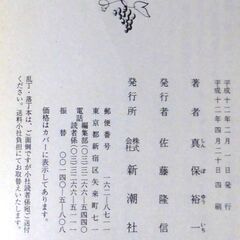 平成十二年二月一日発行
平成十二年四月二十日四刷
著者 真保裕一
発行者 佐藤隆信
発行所 株式会社 新潮社
郵便番号 一六二―八七一
東京都新宿区矢来町七
電話 編集部〇三―三二六六―五四
読者係〇三―三二六六―五一
振替 〇〇一四〇―五―八〇八
価格はカバーに表示してあります。
乱丁・落丁本は、ご面倒ですが小社読者係宛ご送付
ください。送料小社負担にてお取替えいたします。